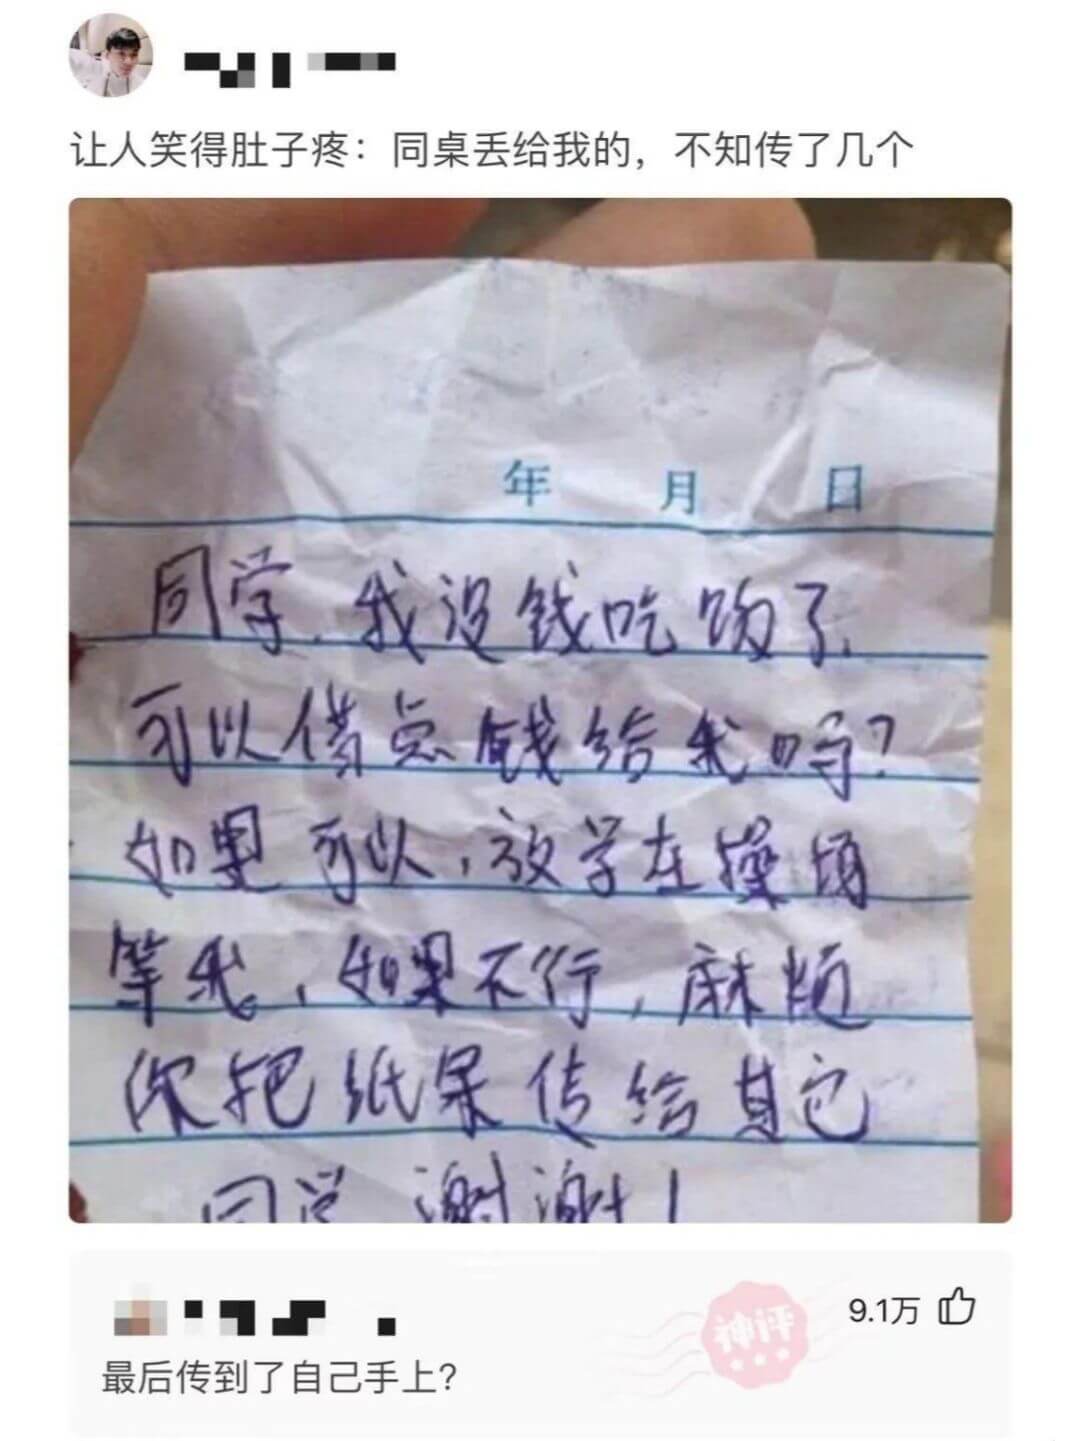 让人笑得肚子疼：同桌丢给我的，不知传了几个
年 月 日
同学，我没钱吃饭了，
可以借点钱给我吗？
如果可以，放学在操场
等我，如果不行，麻烦
你把纸条传给其它
同学，谢谢！
9.1万
神评
最后传到了自己手上？